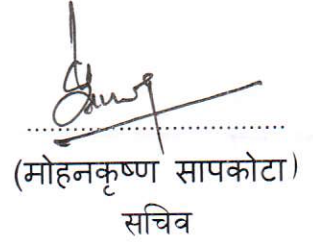 (मोहनकृष्ण सापकोटा)
सचिव